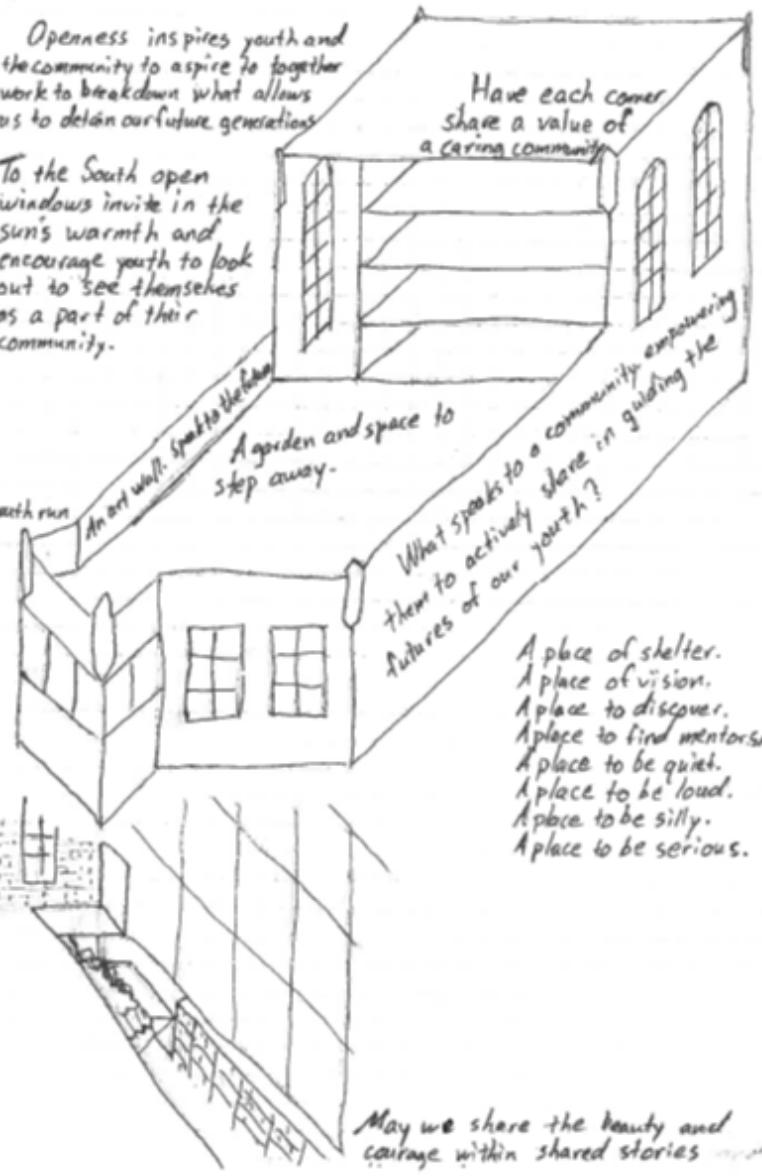 Openness inspires youth and
the community to aspire to together
work to breakdown what allows
us to detain our future generations
Have each corner
share a value of
a caring community
To the South open
windows invite in the
sun's warmth and
encourage youth to look
out to see themselves
as a part of their
community.
An art wall. speak to the future
A garden and space to
step away.
outh run
What speaks to a community empowering
them to actively share in guiding the
futures of our youth?
A place of shelter.
A place of vision.
A place to discover.
A place to find mentors.
A place to be quiet.
A place to be loud.
A place to be silly.
A place to be serious.
May we share the beauty and
courage within shared stories